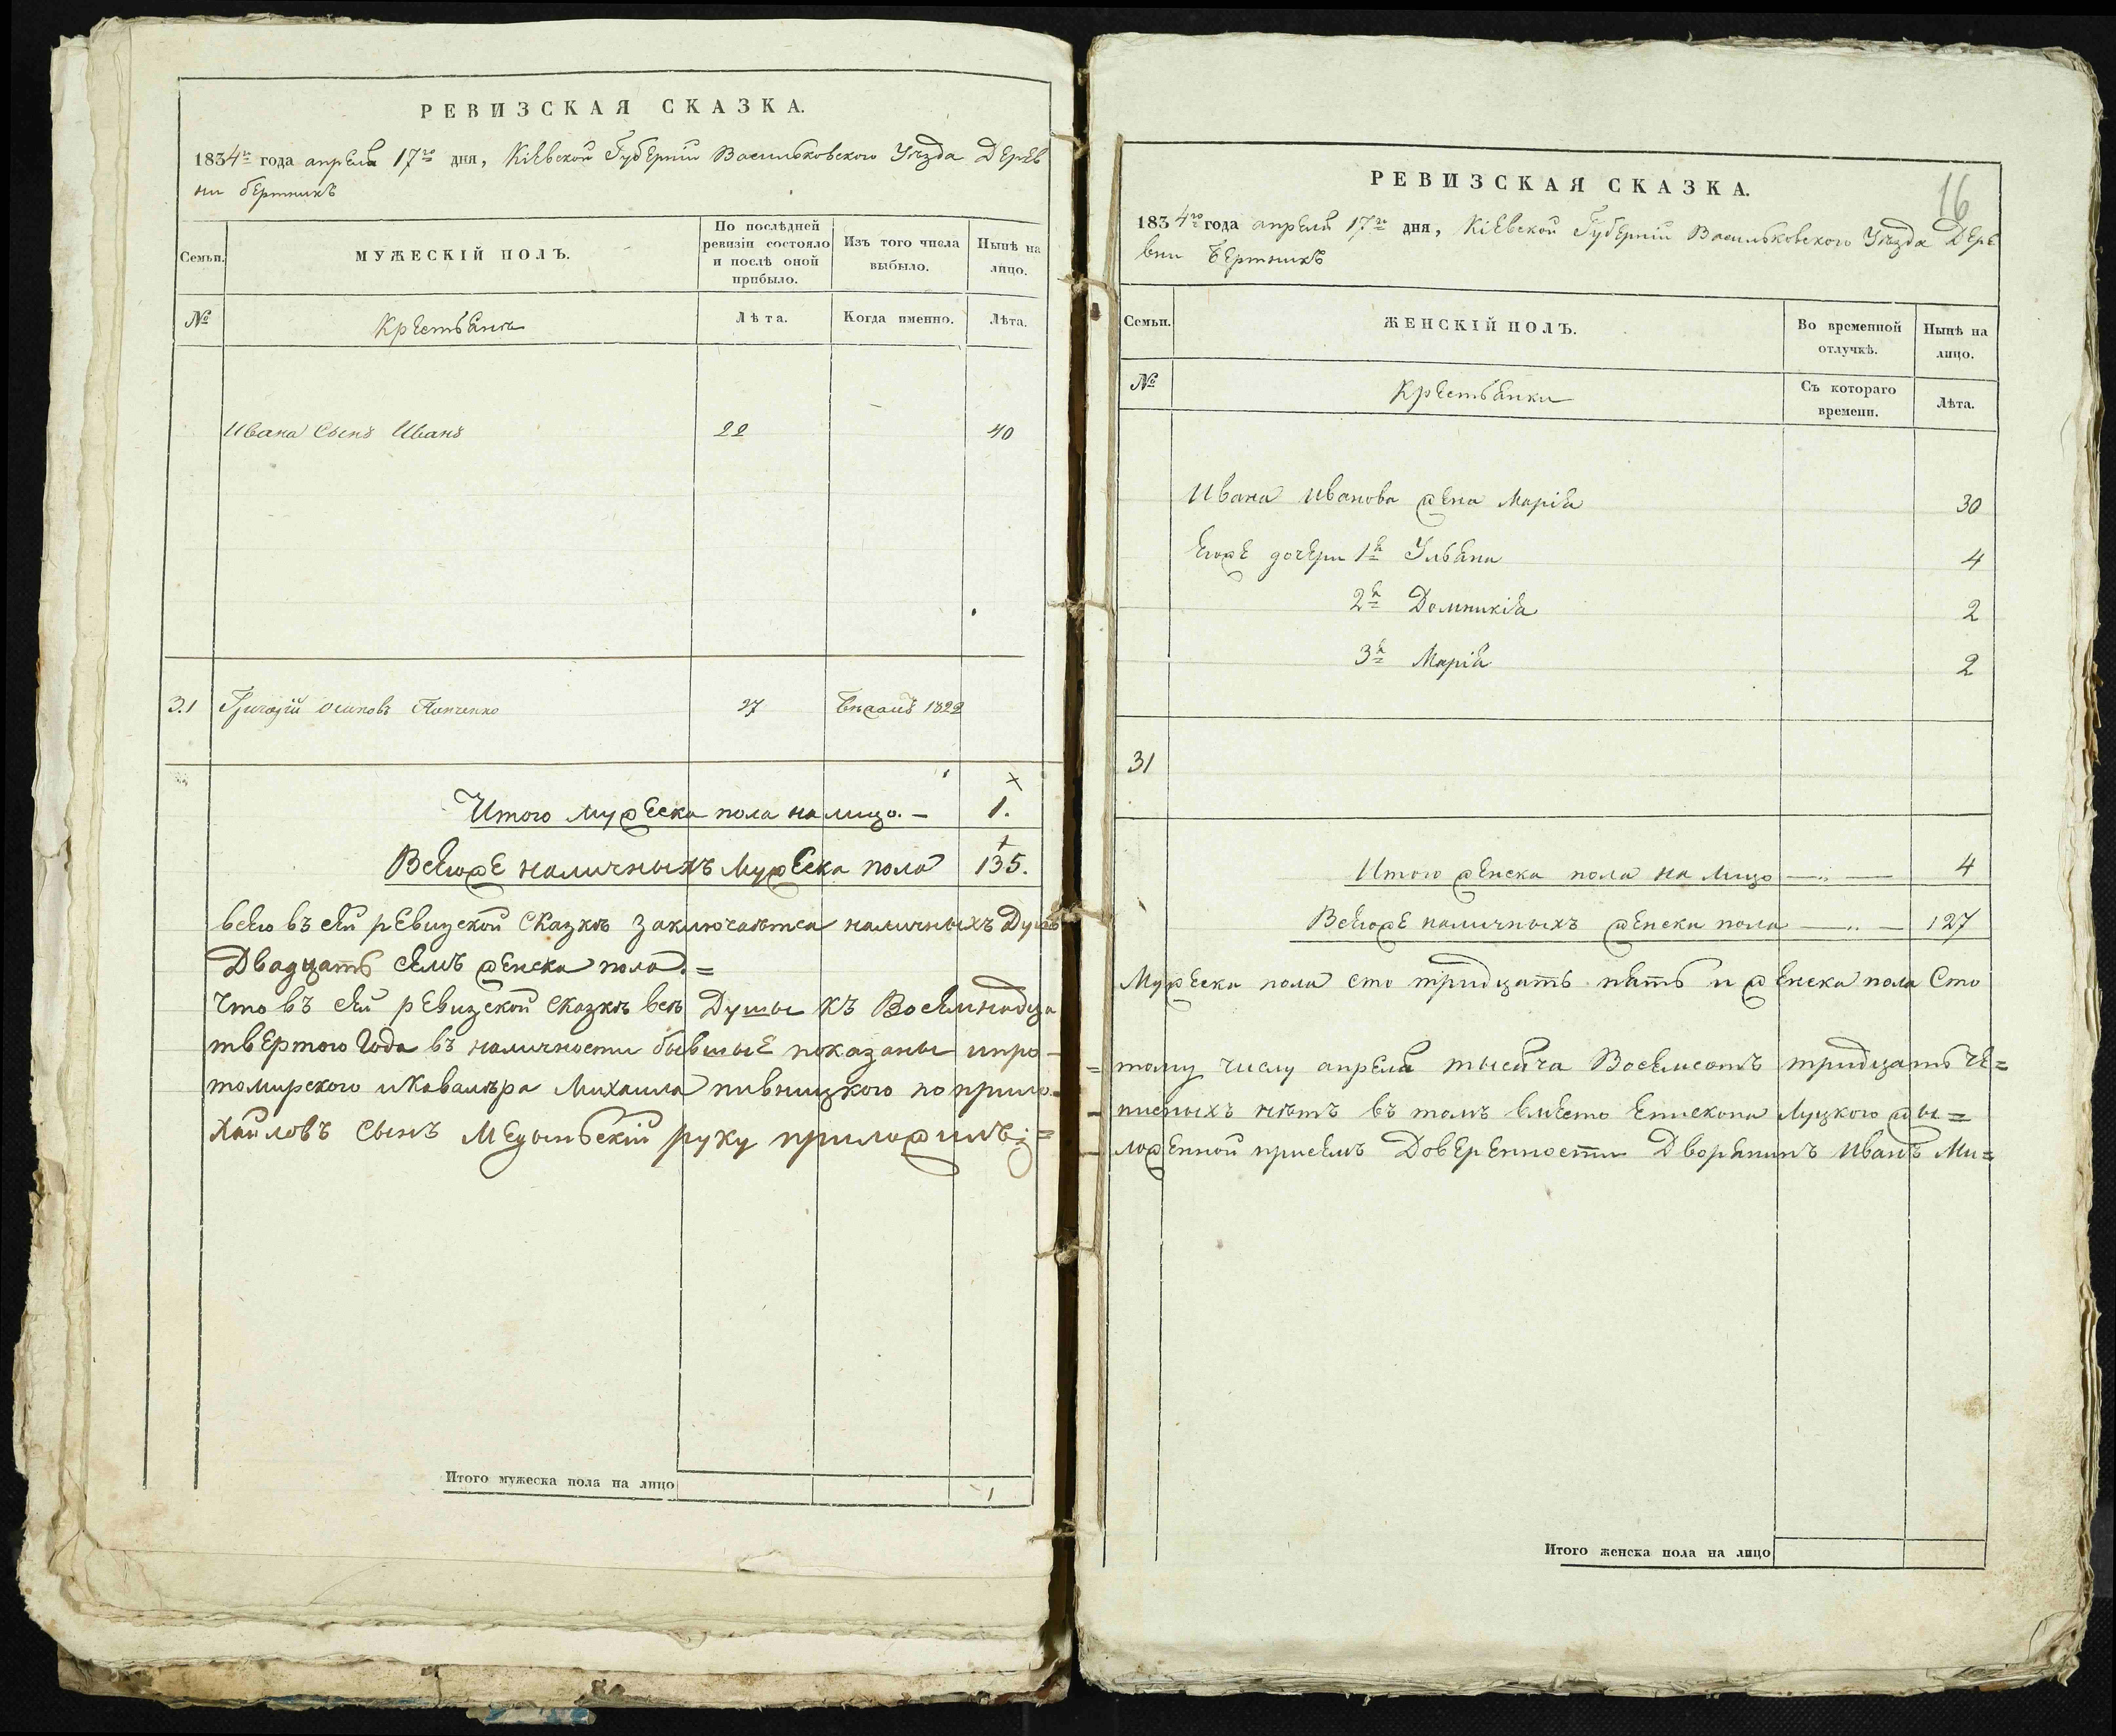 РЕВИЗСКАЯ СКАЗКА.
1834го года апреля 17го дня, Кіевской Губерніи Васильковского Уѣзда Дерев
ни бертникъ
Семьи.
МУЖЕСКІЙ ПОЛЪ.
По послѣдней ревизіи состояло и послѣ оной прибыло.
Изъ того числа выбыло.
Нынѣ на лицо.
№
Крестьяня
Лѣта.
Когда именно.
Лѣта.
Ивана Сынъ Иванъ 22 40
31 Григорій осиповъ 27 Бѣжалъ 1822
Итого мужеска пола налицо. – 1.
Всегоже наличныхъ Мужеска пола 135.
всего въ сей ревизской сказкѣ заключается наличныхъ Душъ
Двадцать семъ женска пола. =
Что въ сей ревизской сказкѣ всѣ Душы къ Восемнадца
твертого Года въ наличности бывшые показаны ипро-
томирского иКавалѣра Михаила пивницкого по прило=
хайловъ Сынъ Медыньскій руку приложилъ;=
Итого мужеска пола на лицо 1
16
РЕВИЗСКАЯ СКАЗКА.
1834го года апреля 17го дня, Кіевской Губерніи Васильковского Уѣзда Дере
вни Бертникъ
Семьи.
ЖЕНСКІЙ ПОЛЪ.
Во временной отлучкѣ.
Нынѣ на лицо.
№
Крестьянки
Съ котораго времени.
Лѣта.
Ивана Иванова жена Марія 30
Егоже дочери 1я Ульяна 4
2я Домникія 2
3я Марія 2
31
Итого женска пола на лицо 4
Всегоже наличныхъ женска пола 127
Мужеска пола сто тридцать пять и женска пола Сто
=тому числу апреля тысяча Восемсотъ тридцать че=
писныхъ нѣтъ въ томъ вместо Епископа Луцкого жы=
ложенной присемъ Доверенности Дворянинъ Иванъ Ми=
Итого женска пола на лицо